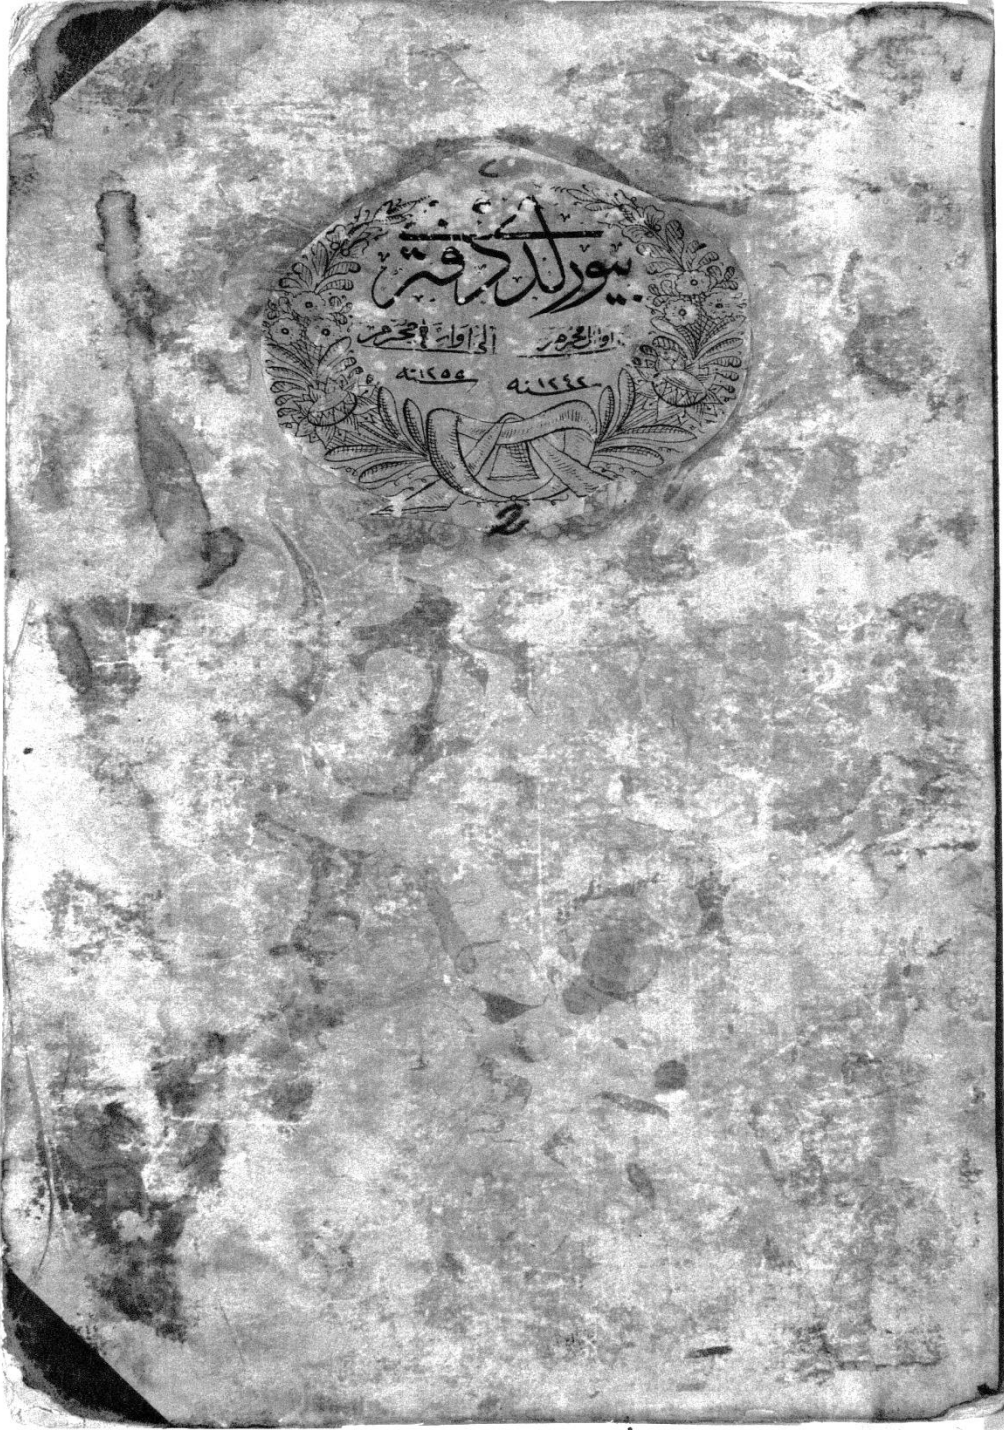 بيورلدى دفترى
اوائل محرم الى اواخر محرم
سنه ١٢٤٢ سنه ١٢٥٥
2